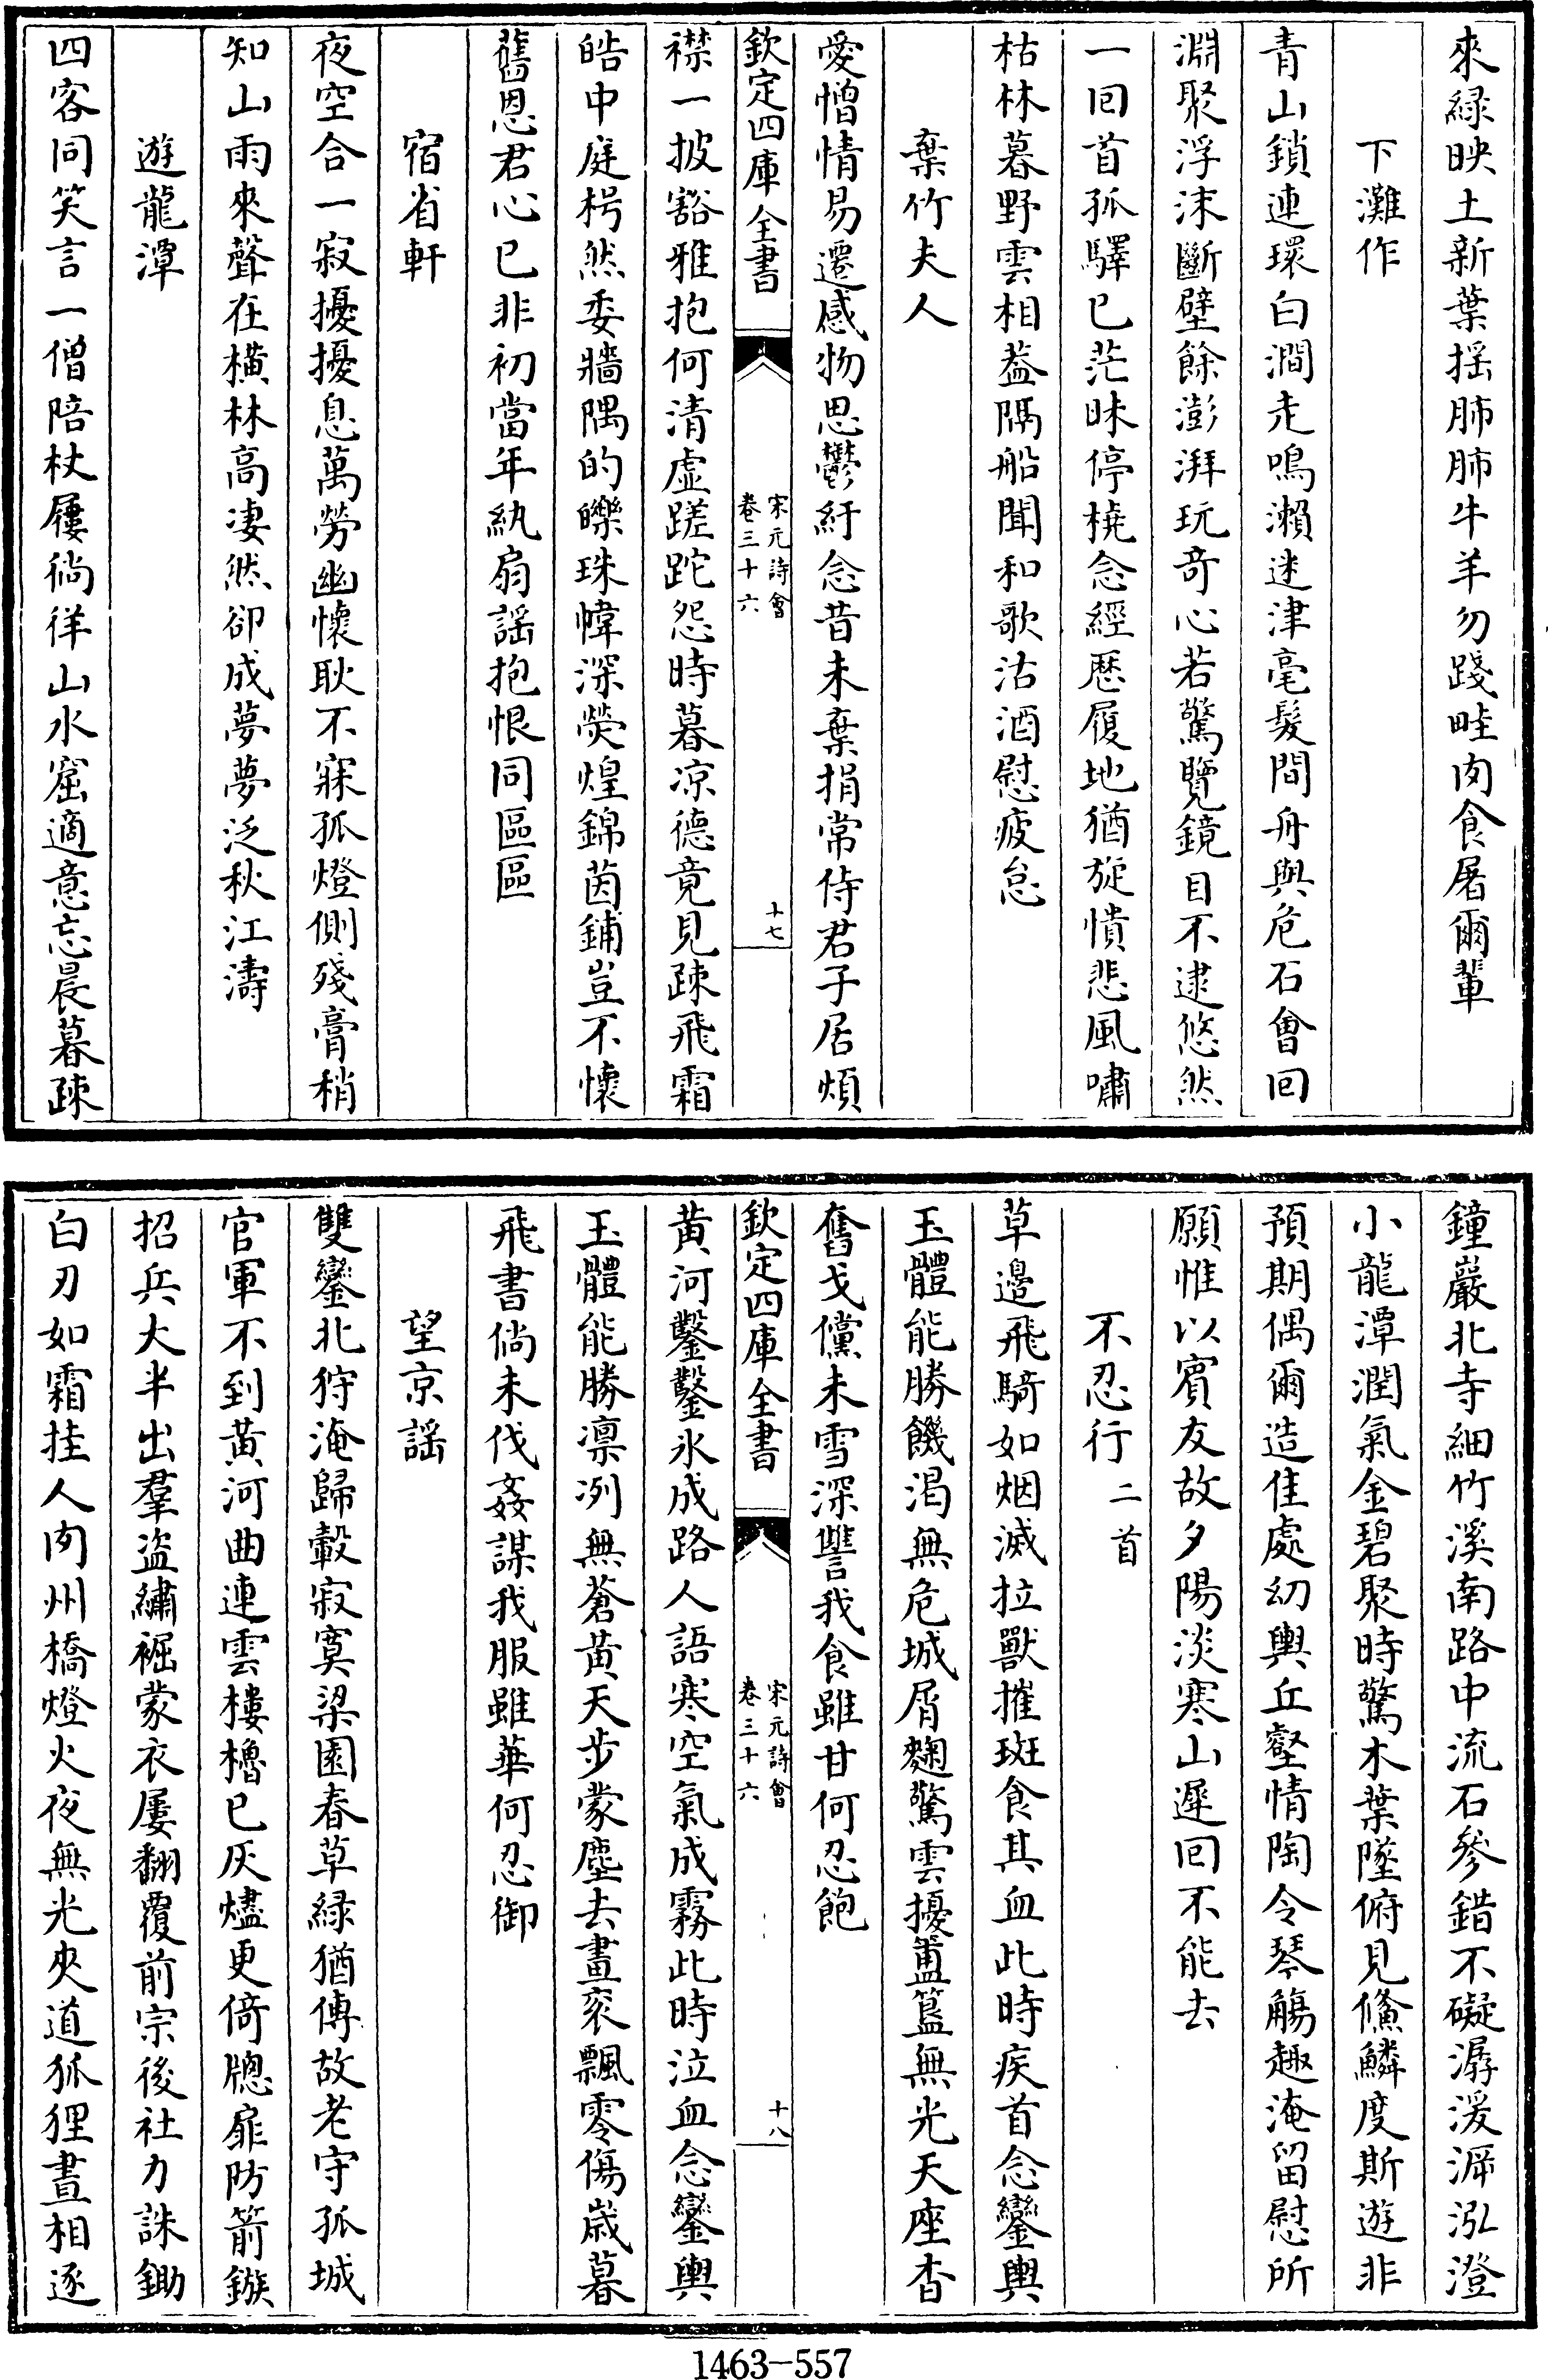 來綠映土新葉揺肺肺牛羊勿踐畦肉食屠爾輩
下灘作
青山鎖連環白澗走鳴瀨迷津毫髮間舟與危石會回
淵聚浮沫斷壁餘澎湃玩奇心若驚覽鏡目不逮悠然
一回首孤驛已茫昧停橈念經歴履地猶旋憒悲風嘯
枯林暮野雲相蓋隔船聞和歌沽酒慰疲怠
棄竹夫人
愛憎情易遷感物思鬱紆念昔未棄捐常侍君子居煩
欽定四庫全書
宋元詩會
卷三十六
十七
襟一披豁雅抱何清虛蹉跎怨時暮凉德竟見疎飛霜
皓中庭枵然委牆隅的皪珠幃深熒煌錦茵鋪豈不懷
舊恩君心已非初當年紈扇謡抱恨同區區
宿省軒
夜空合一寂擾擾息萬勞幽懷耿不寐孤燈側殘膏稍
知山雨來聲在橫林高凄然卻成夢夢泛秋江濤
遊龍潭
四客同笑言一僧陪杖屨徜徉山水窟適意忘晨暮疎
鐘巖北寺細竹溪南路中流石參錯不礙潺湲漘泓澄
小龍潭潤氣金碧聚時驚木葉墜俯見鯈鱗度斯遊非
預期偶爾造佳處幼輿丘壑情陶令琴觴趣淹留慰所
願惟以賓友故夕陽淡寒山遲回不能去
不忍行 二首
草邊飛騎如烟滅拉獸摧斑食其血此時疾首念鑾輿
玉體能勝饑渴無危城屑麴驚雲擾簠簋無光天座杳
奮戈儻未雪深讐我食雖甘何忍飽
欽定四庫全書
宋元詩會
卷三十六
十八
黄河鑿鑿氷成路人語寒空氣成霧此時泣血念鑾輿
玉體能勝凛冽無蒼黄天步蒙塵去畫衮飄零傷歲暮
飛書倘未伐姦謀我服雖華何忍御
望京謡
雙鑾北狩淹歸轂寂寞梁園春草緑猶傳故老守孤城
官軍不到黄河曲連雲樓櫓已灰燼更倚牕扉防箭鏃
招兵大半出羣盜繡裾蒙衣屢翻覆前宗後社力誅鋤
白刃如霜挂人肉州橋燈火夜無光夾道狐狸晝相逐
1463-557